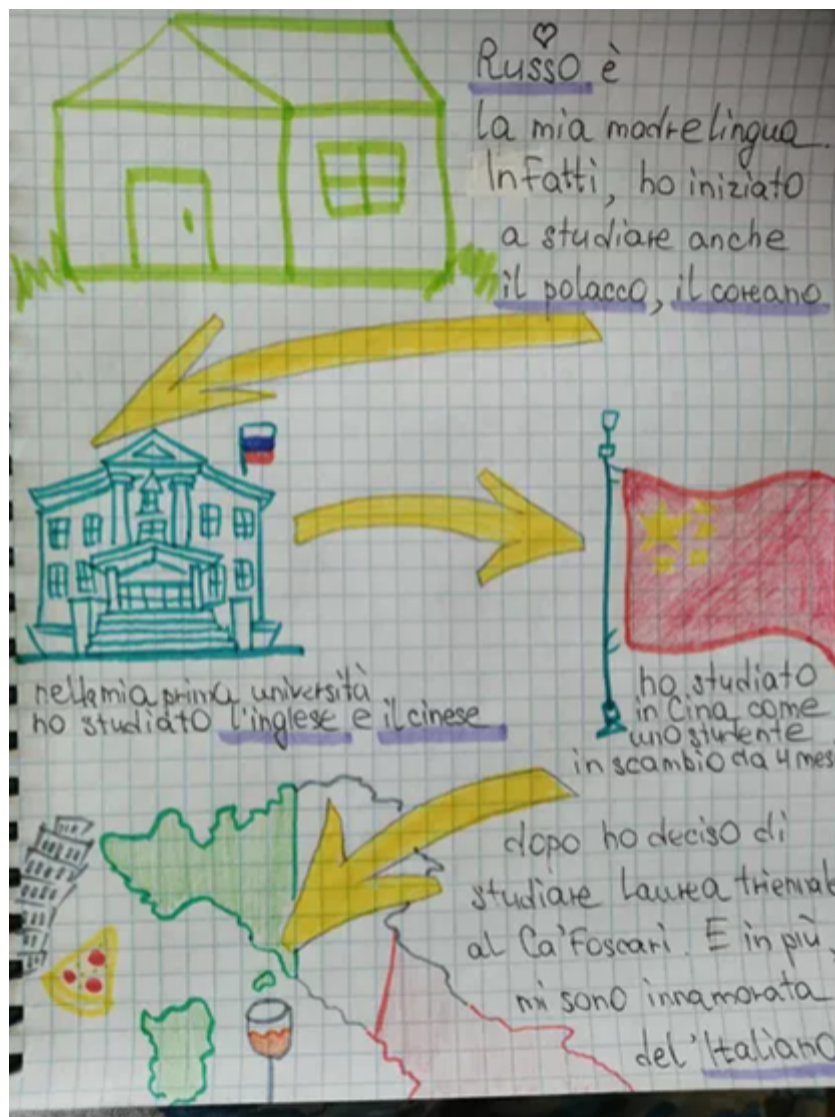 Russo è
la mia madrelingua.
Infatti, ho iniziato
a studiare anche
il polacco, il coreano
nella mia prima università
ho studiato l'inglese e il cinese
ho studiato
in Cina come
uno studente
in scambio da 4 mesi
dopo ho deciso di
studiare Laurea triennale
al Ca'Foscari. E in più,
mi sono innamorata
del'Italiano